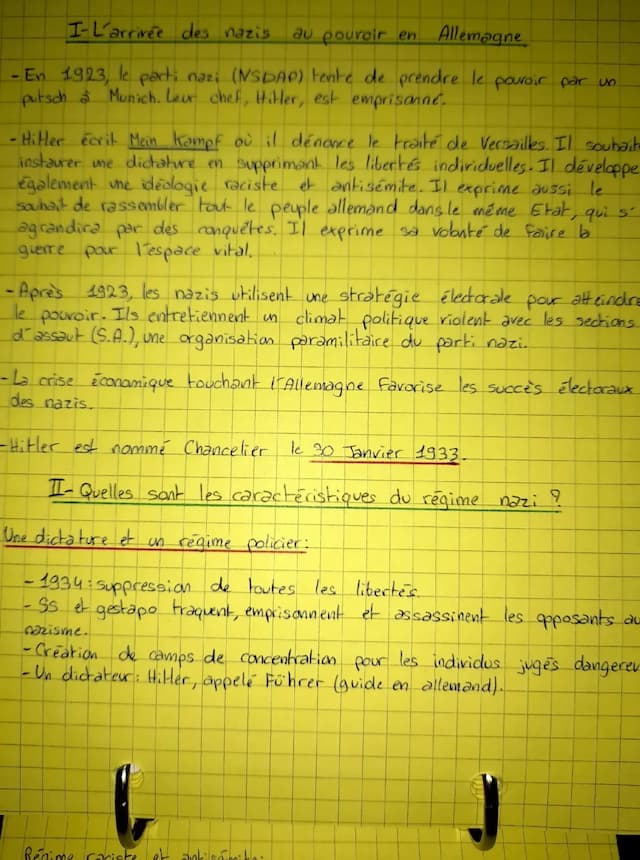 I- L'arrivée des nazis au pouvoir en Allemagne
- En 1923, le parti nazi (NSDAP) tente de prendre le pouvoir par un
putsch à Munich. Leur chef, Hitler, est emprisonné.
- Hitler écrit Mein Kampf où il dénonce le traité de Versailles. Il souhait
instaurer une dictature en supprimant les libertés individuelles. Il développe
également une idéologie raciste et antisémite. Il exprime aussi le
souhait de rassembler tout le peuple allemand dans le même Etat, qui s'
agrandira par des conquêtes. Il exprime sa volonté de faire la
guerre pour l'espace vital.
- Après 1923, les nazis utilisent une stratégie électorale pour atteindre
le pouvoir. Ils entretiennent un climat politique violent avec les sections
d'assaut (S.A.), une organisation paramilitaire du parti nazi.
- La crise économique touchant l'Allemagne favorise les succès électoraux
des nazis.
- Hitler est nommé Chancelier le 30 Janvier 1933.
II- Quelles sont les caractéristiques du régime nazi ?
Une dictature et un régime policier :
- 1934 : suppression de toutes les libertés.
- SS et gestapo traquent, emprisonnent et assassinent les opposants au
nazisme.
- Création de camps de concentration pour les individus jugés dangereu
- Un dictateur : Hitler, appelé Führer (guide en allemand).
Régime raciste et antisémite :